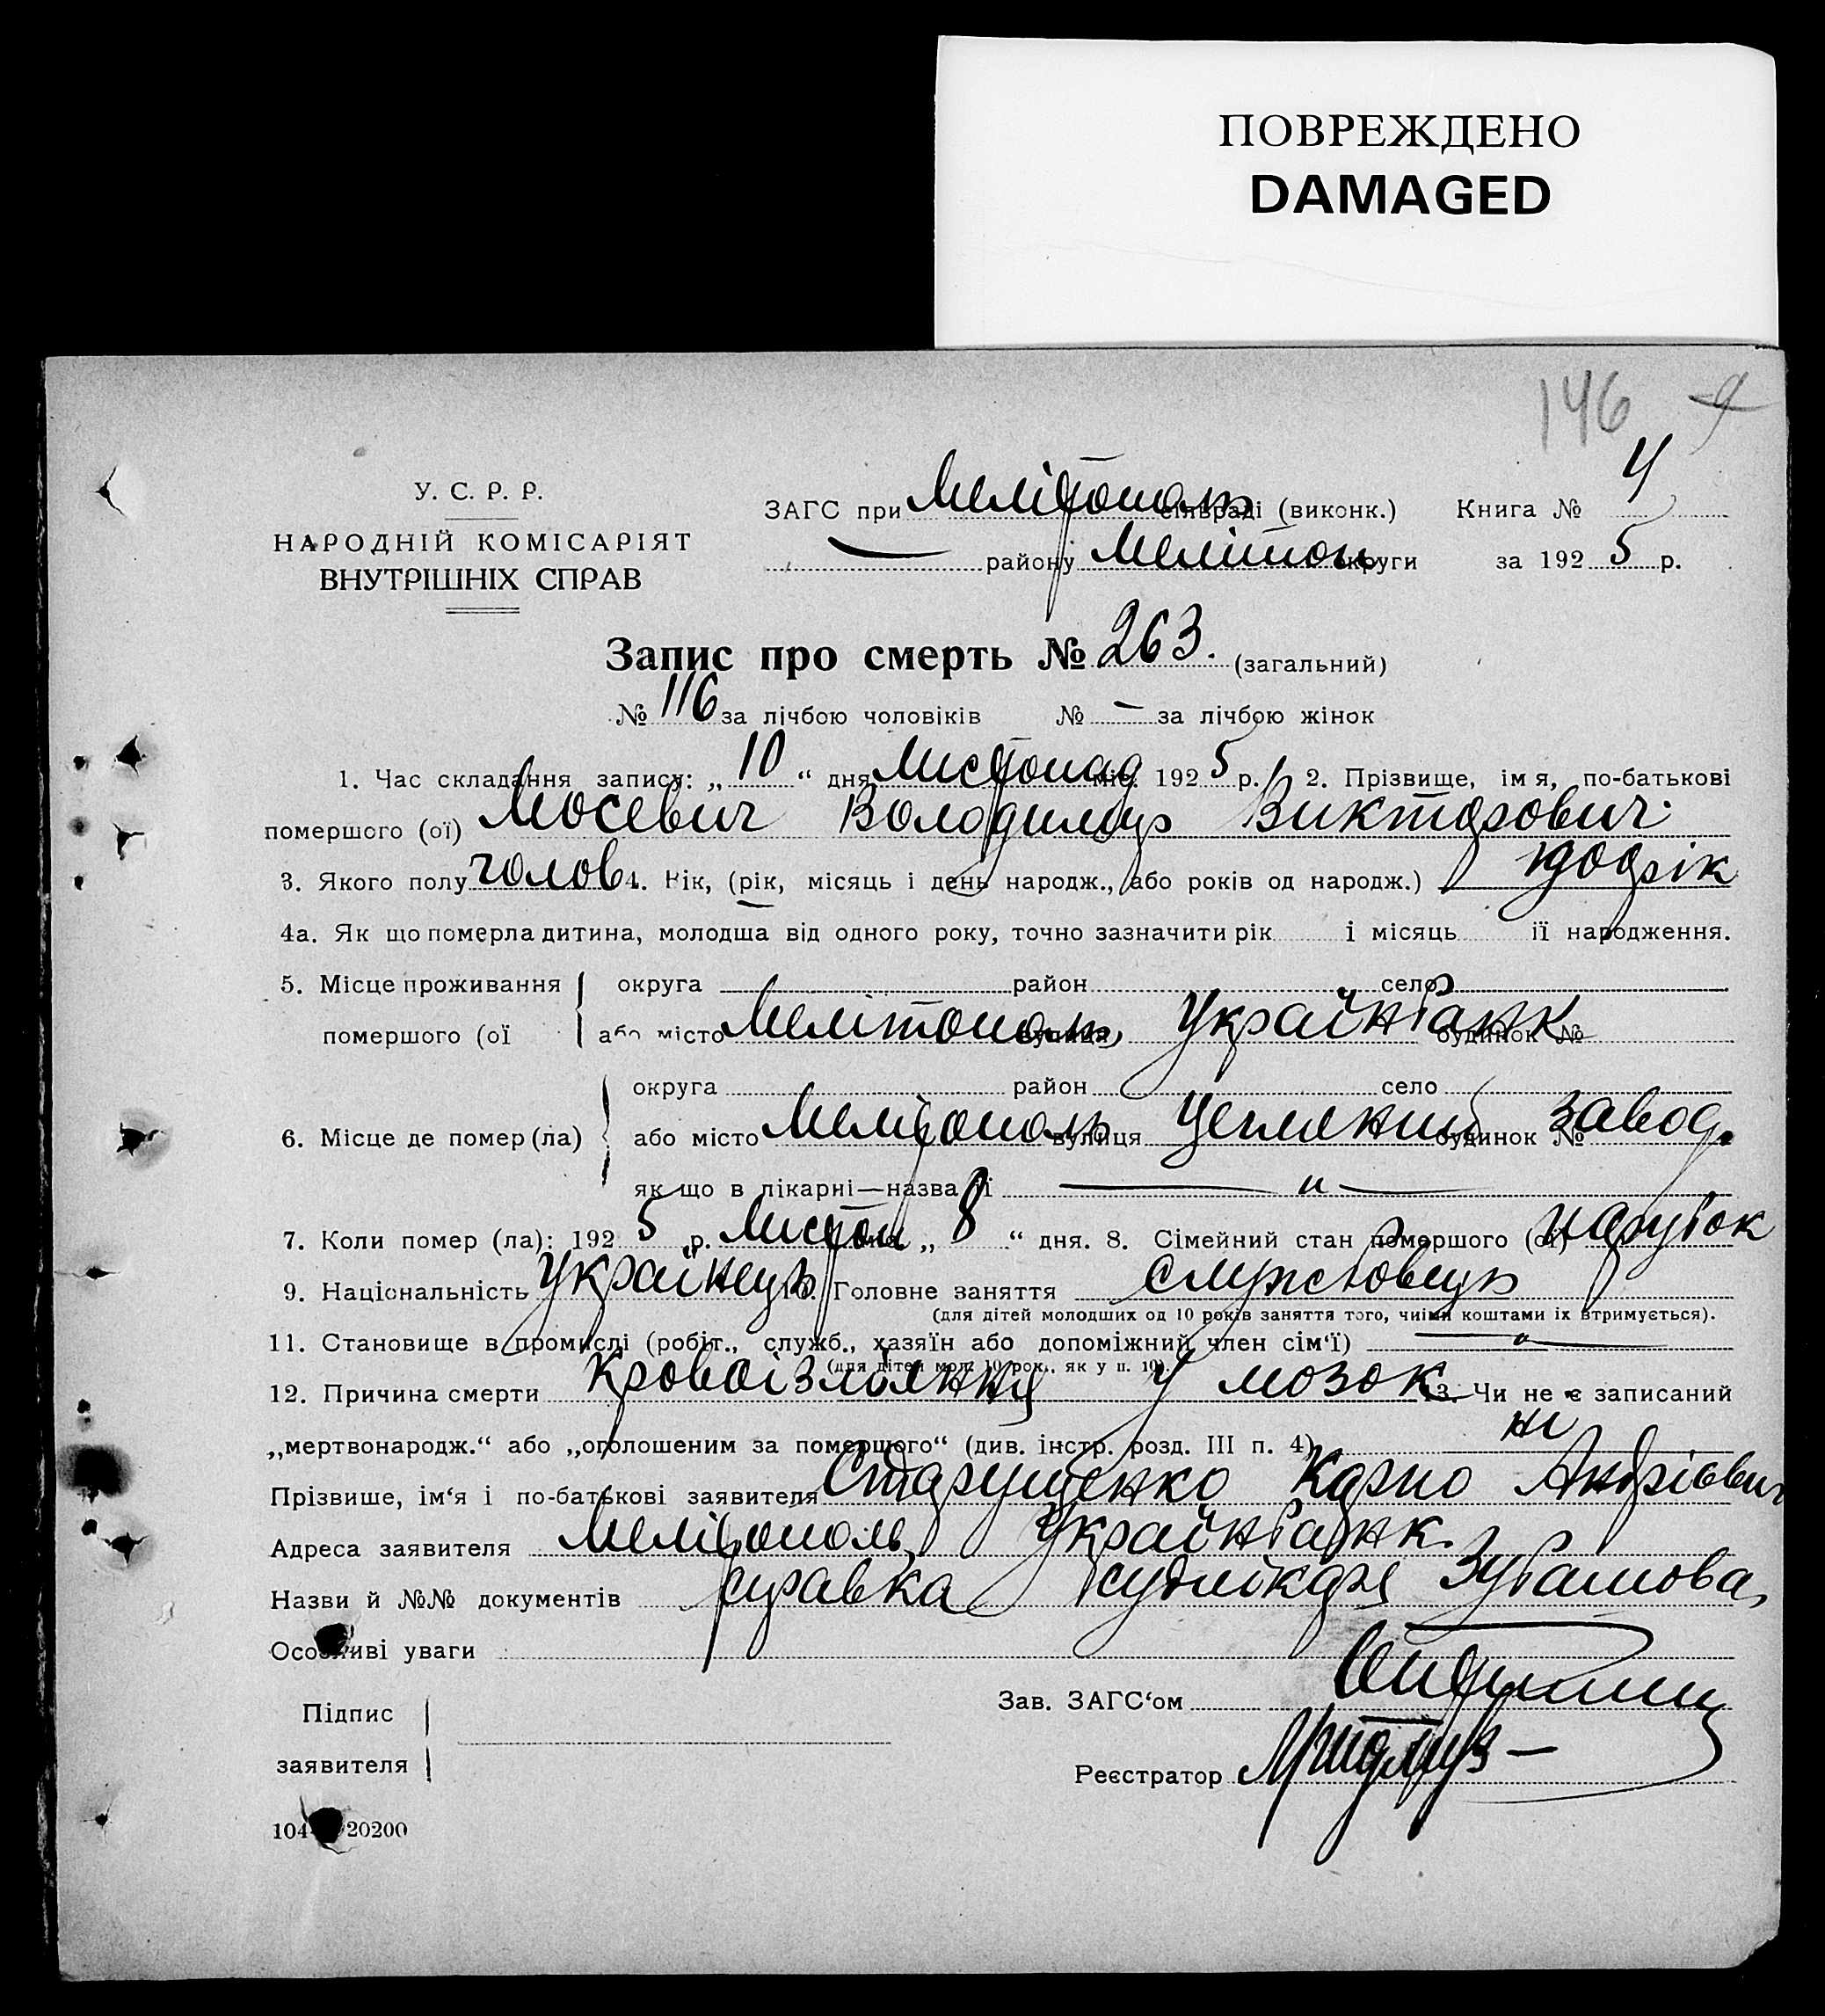 ПОВРЕЖДЕНО
DAMAGED
146
У. С. Р. Р.
НАРОДНІЙ КОМІСАРІЯТ
ВНУТРІШНІХ СПРАВ
ЗАГС при Мелітополь сільраді (виконк.) Книга № 4
— району Мелітоп округи за 192 5 р.
Запис про смерть № 263. (загальний)
№ 116 за лічбою чоловіків № — за лічбою жінок
1. Час складання запису: „ 10 “ дня Листопад міс. 192 5 р. 2. Прізвище, імя, по-батькові
помершого (ої) Мосевич Володимир Викторович
3. Якого полу голов 4. Вік, (рік, місяць і день народж., або років од народж.) рік
4а. Як що померла дитина, молодша від одного року, точно зазначити рік і місяць її народження.
5. Місце проживання округа район село
помершого (ої або місто Мелітополь вулиця Українбанк будинок №
округа район село
6. Місце де помер (ла) або місто Мелітополь вулиця Цегляний будинок № завод.
як що в лікарні—назва її — „ —
7. Коли помер (ла): 192 5 р. Листоп міс. „ 8 “ дня. 8. Сімейний стан помершого (ої) парубок
9. Національність Українець 10. Головне заняття службовець
(для дітей молодших од 10 років заняття того, чиїми коштами їх втримується).
11. Становище в промислі (робіт., служб., хазяїн або допоміжний член сім‘ї) — „ —
(для дітей мол. 10 рок., як у п. 10).
12. Причина смерти кровоізліяння у мозок 13. Чи не є записаний
„мертвонародж.“ або „оголошеним за помершого“ (див. інстр. розд. III п. 4) ні
Прізвише, ім‘я і по-батькові заявителя Старущенко Карпо Андрієвич
Адреса заявителя Мелітополь Українбанк.
Назви й №№ документів справка судлікаря Зубашова
Особливі уваги
Зав. ЗАГС‘ом
Підпис
заявителя
Реєстратор
104 20200